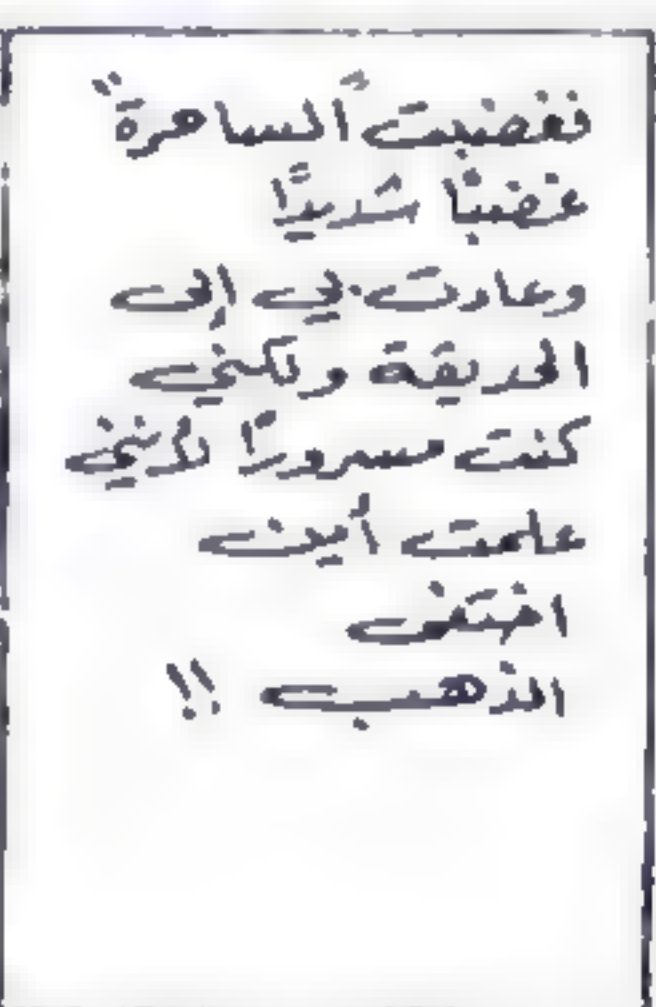 فغضبت "الساحرة"
غضبًا شديدًا
وعادت بي إلى
الحديقة ولكني
كنت مسرورًا لأنني
علمت أين
اختفى
الذهب !!